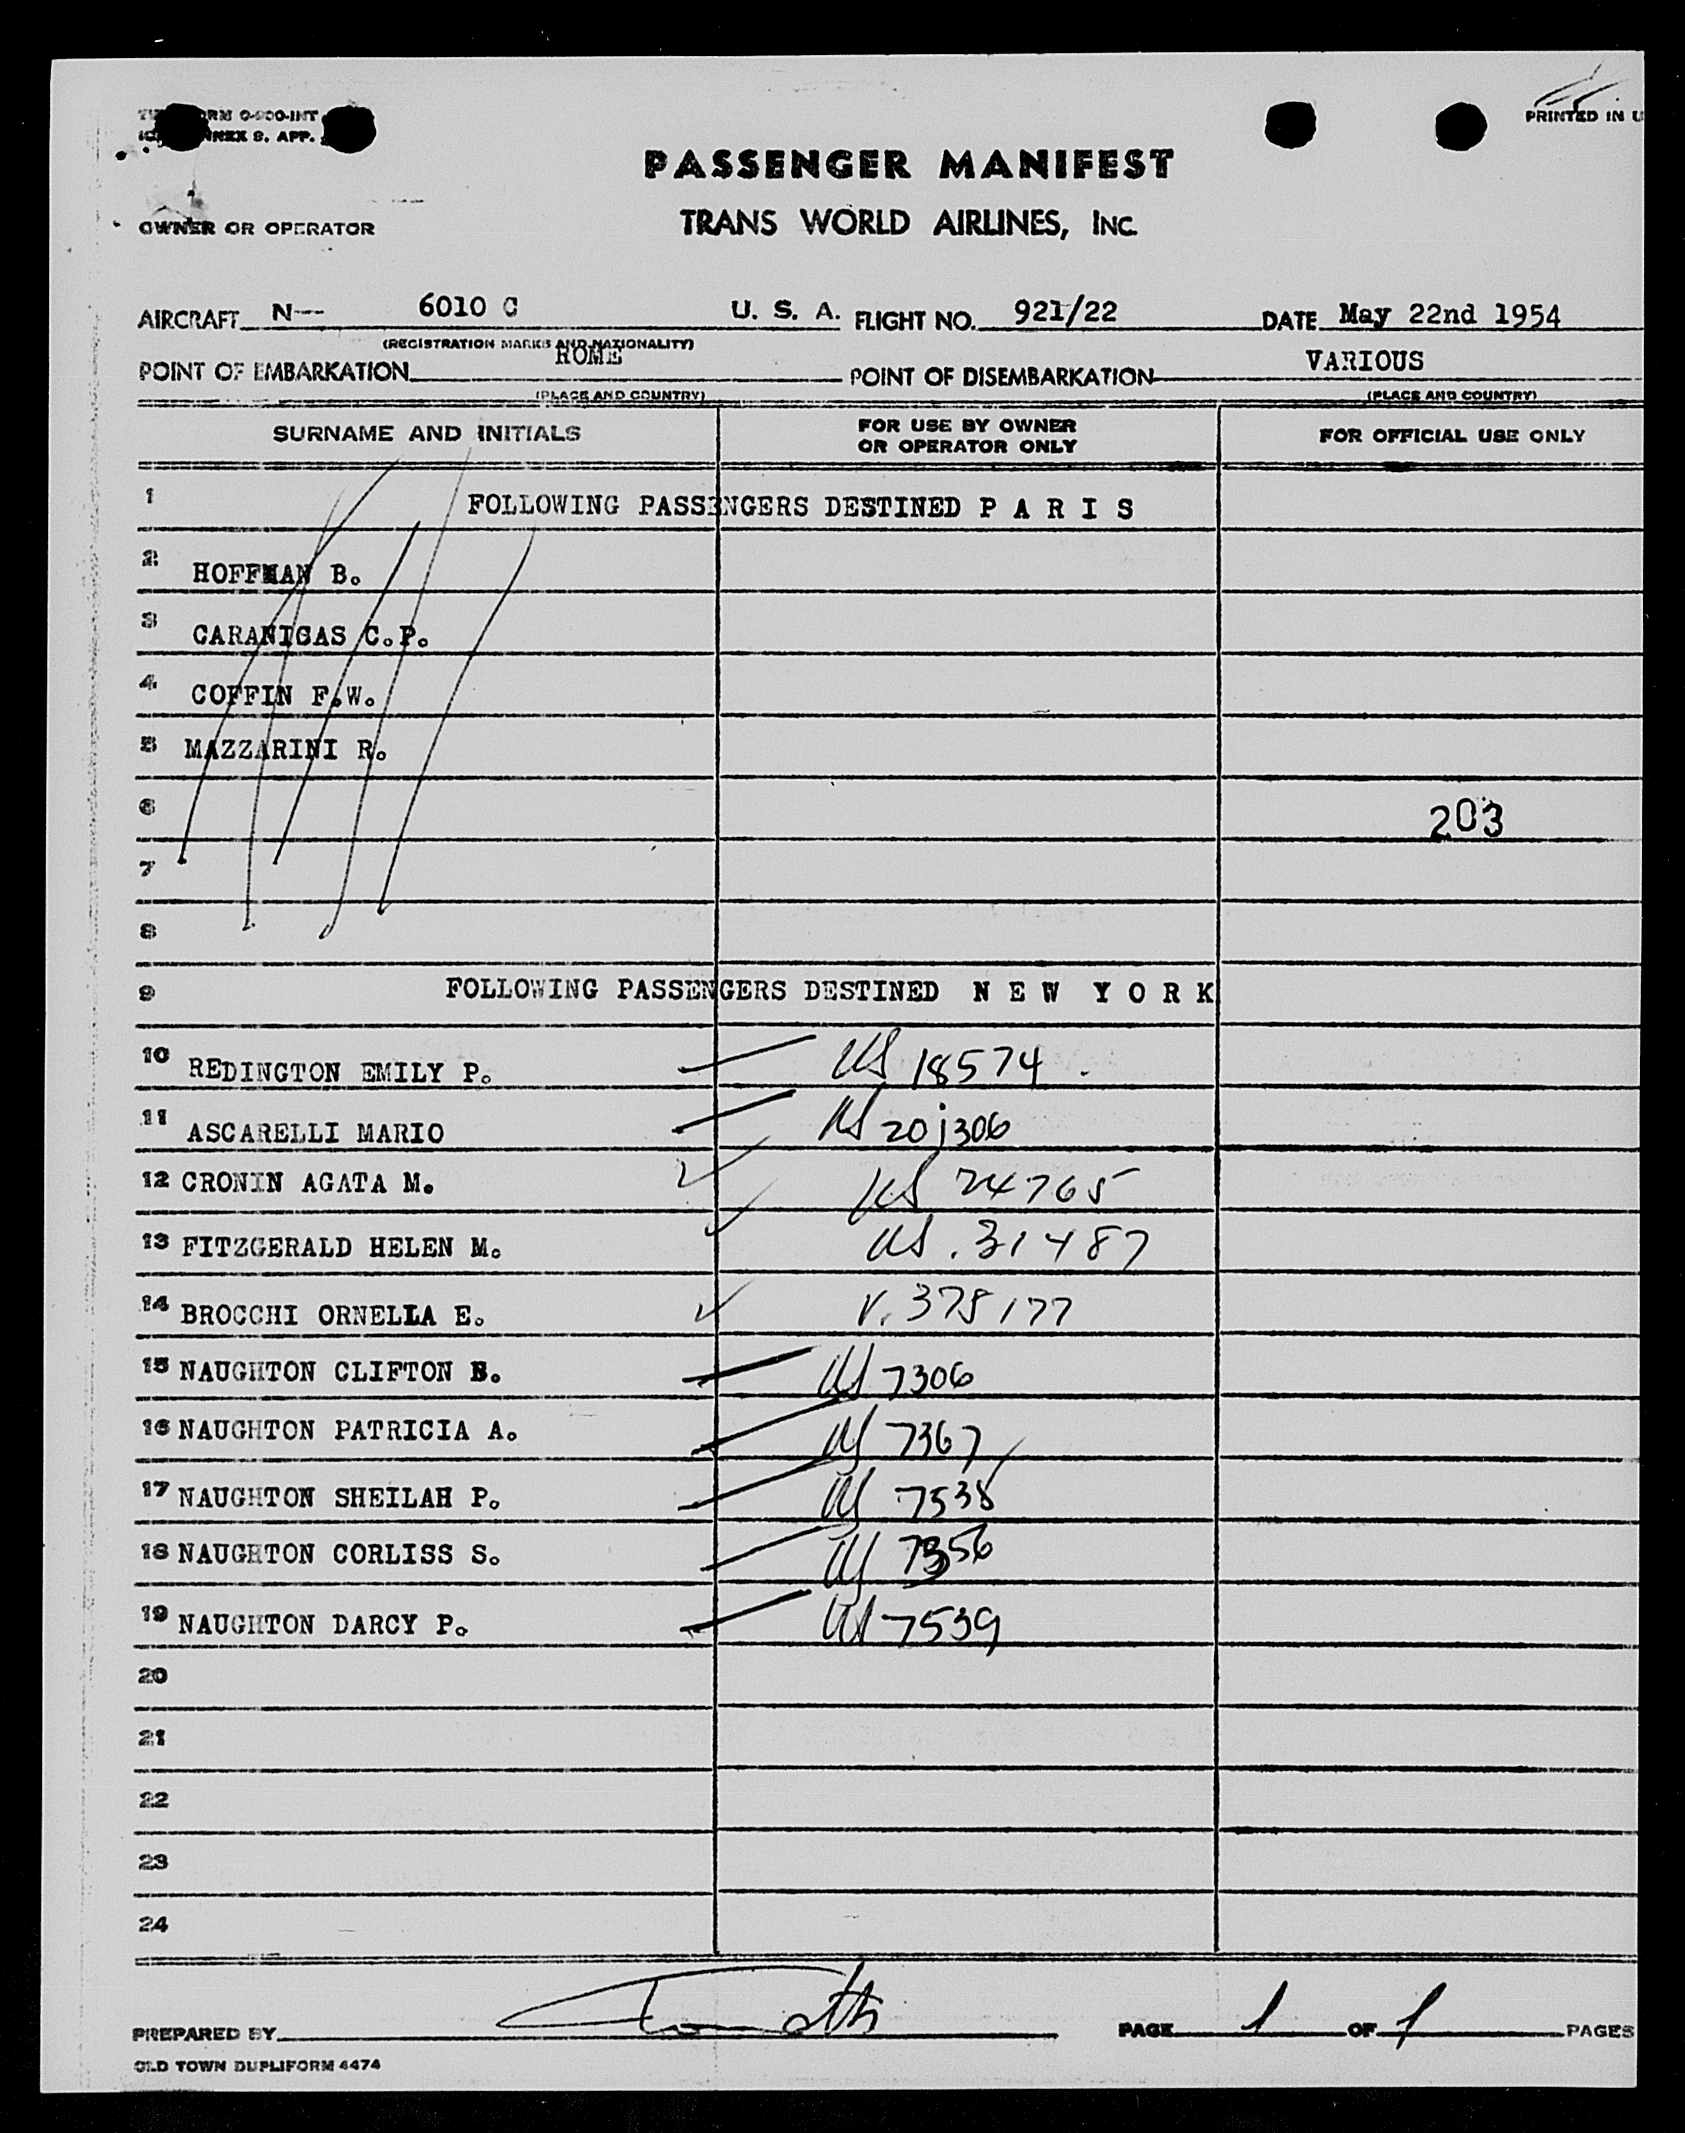 RM O-900-INT
NNEX 9. APP.
PRINTED IN U
PASSENGER MANIFEST
TRANS WORLD AIRLINES, INC.
OWNER OR OPERATOR
AIRCRAFT N-- 6010 C U. S. A. FLIGHT NO. 921/22 DATE May 22nd 1954
(REGISTRATION MARKS AND NATIONALITY)
POINT OF EMBARKATION ROME POINT OF DISEMBARKATION VARIOUS
(PLACE AND COUNTRY) (PLACE AND COUNTRY)
SURNAME AND INITIALS FOR USE BY OWNER OR OPERATOR ONLY FOR OFFICIAL USE ONLY
1 FOLLOWING PASSENGERS DESTINED P A R I S
2 HOFFMAN B.
3 CARANIGAS C.P.
4 COFFIN F.W.
5 MAZZARINI R.
6 203
7
8
9 FOLLOWING PASSENGERS DESTINED N E W Y O R K
10 REDINGTON EMILY P. US 18574
11 ASCARELLI MARIO US 20j306
12 CRONIN AGATA M. US 24765
13 FITZGERALD HELEN M. US. 31487
14 BROCCHI ORNELLA E. V. 378177
15 NAUGHTON CLIFTON B. US 7306
16 NAUGHTON PATRICIA A. US 7367
17 NAUGHTON SHEILAH P. US 7538
18 NAUGHTON CORLISS S. US 7356
19 NAUGHTON DARCY P. US 7539
20
21
22
23
24
PREPARED BY PAGE 1 OF 1 PAGES
OLD TOWN DUPLIFORM 4474